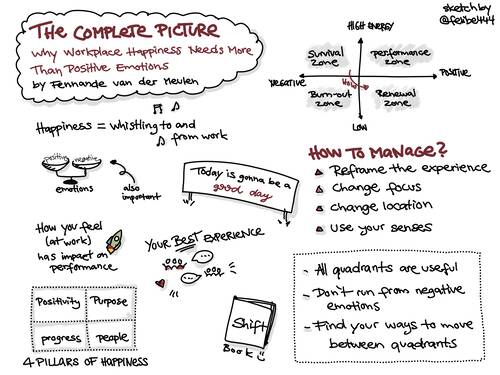 THE COMPLETE PICTURE
Why Workplace Happiness Needs More
Than Positive Emotions
by Fennande van der Meulen
Happiness = whistling to and
from work
positive negative
emotions
also
important
Today is gonna be a
good day
How you feel
(at work)
has impact on
performance
YOUR BEST EXPERIENCE
Positivity Purpose
progress people
4 PILLARS OF HAPPINESS
Shift
Book
sketch by
@felibe444
HIGH ENERGY
Survival
zone
Performance
zone
NEGATIVE
POSITIVE
Burn-out
zone
Renewal
zone
LOW
HOW TO MANAGE?
Reframe the experience
Change focus
change location
Use your senses
- All quadrants are useful
- Don't run from negative
emotions
- Find your ways to move
between quadrants